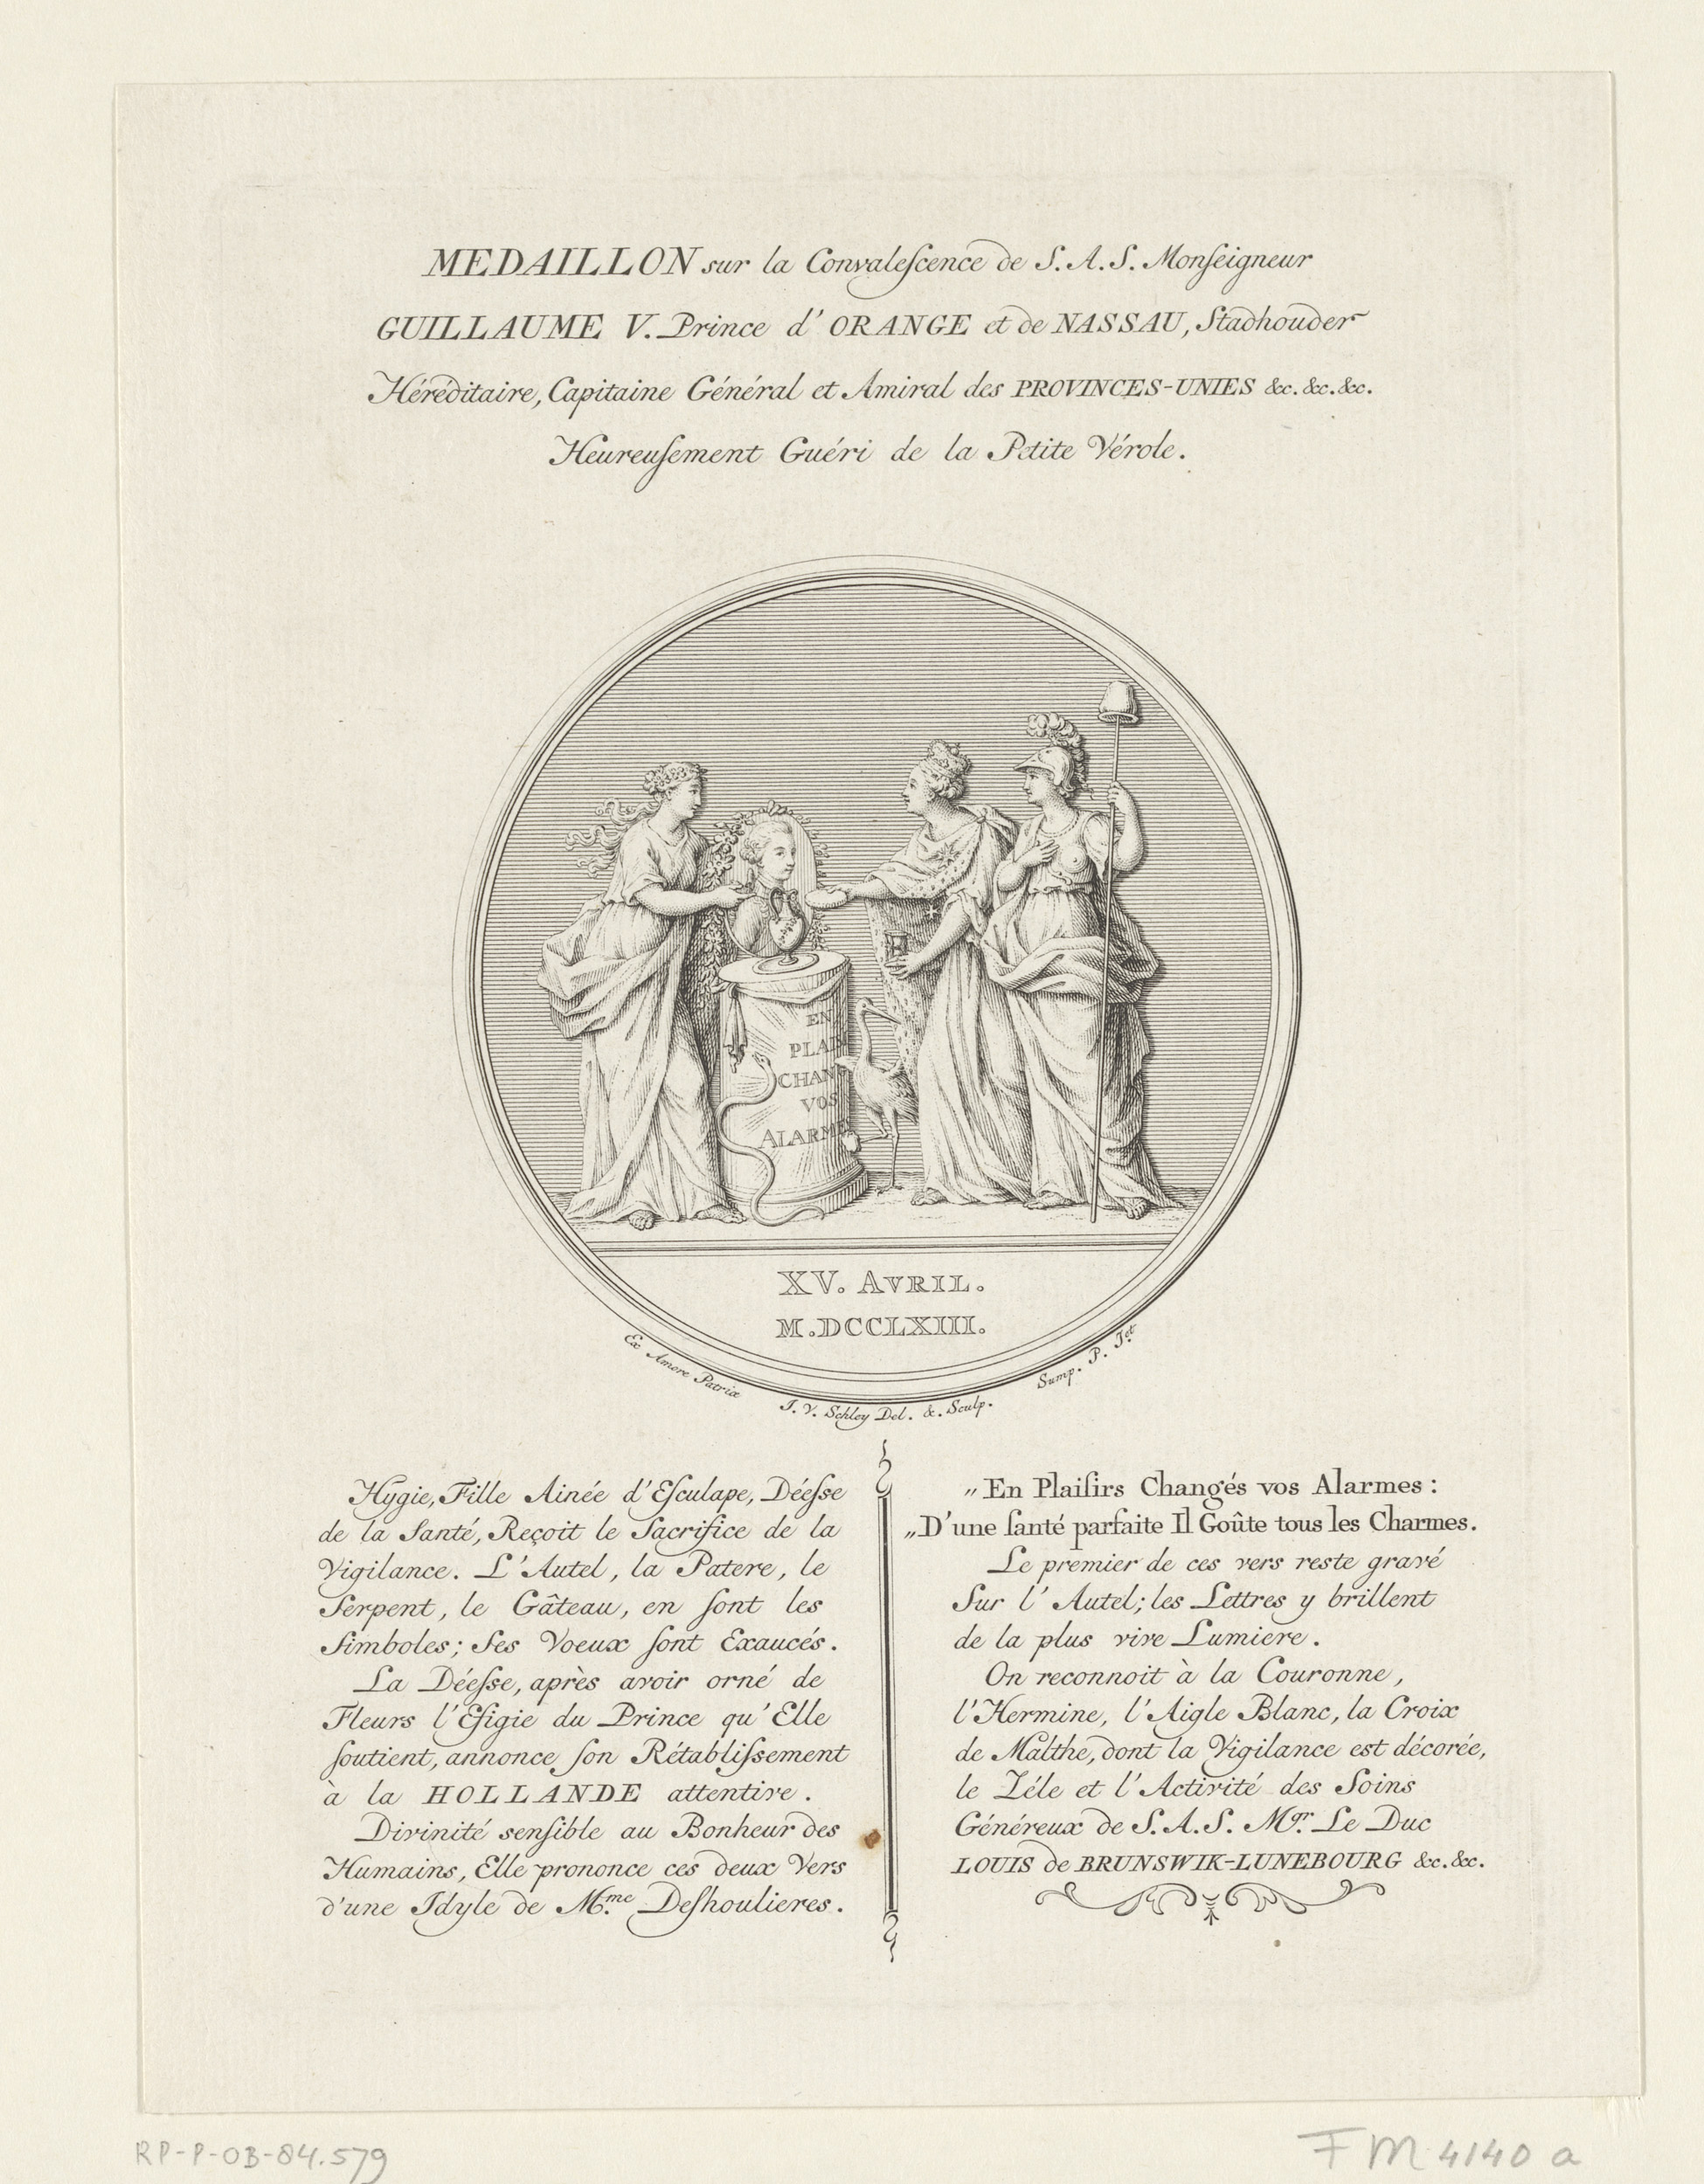 MEDAILLON sur la Convaleſcence de S. A. S. Monſeigneur
GUILLAUME V. Prince d' ORANGE et de NASSAU, Stadhouder
Héréditaire, Capitaine Général et Amiral des PROVINCES-UNIES &c. &c. &c.
Heureuſement Guéri de la Petite Vérole.
EN
PLAI
CHAN
VOS
ALARME
XV. AVRIL.
M.DCCLXIII.
Ex Amore Patriæ
J. V. Schley Del. & Sculp.
Sump. P. Jet
Hygie, Fille Ainée d'Eſculape, Déeſse
de la Santé, Reçoit le Sacrifice de la
Vigilance. L'Autel, la Patere, le
Serpent, le Gâteau, en ſont les
Simboles; Ses Voeux ſont Exaucés.
La Déeſse, après avoir orné de
Fleurs l'Efigie du Prince qu'Elle
ſoutient, annonce ſon Rétabliſsement
à la HOLLANDE attentive.
Divinité senſible au Bonheur des
Humains, Elle prononce ces deux Vers
d'une Idyle de Mme. Deſhoulieres.
„En Plaiſirs Changés vos Alarmes :
„D'une ſanté parfaite Il Goûte tous les Charmes.
Le premier de ces vers reste gravé
Sur l' Autel; les Lettres y brillent
de la plus vive Lumiere.
On reconnoit à la Couronne,
l'Hermine, l'Aigle Blanc, la Croix
de Malthe, dont la Vigilance est décorée,
le Zéle et l'Activité des Soins
Généreux de S. A. S. Mgr. Le Duc
LOUIS de BRUNSWIK-LUNEBOURG &c. &c.
RP-P-OB-84.579
FM 4140 a